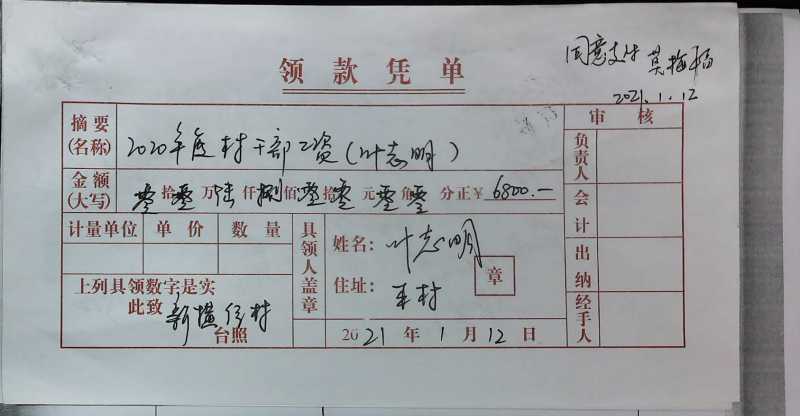 领款凭单
同意支付 莫梅
2021.1.12
摘要(名称) 2020年度村干部工资(叶志明)
金额(大写) 零拾零万陆仟捌佰零拾零元零角零分正¥6800.—
计量单位 单价 数量
上列具领数字是实
此致 新横径村
台照
具领人盖章
姓名:叶志明
住址:本村
章
2021年1月12日
审核
负责人
会计
出纳
经手人